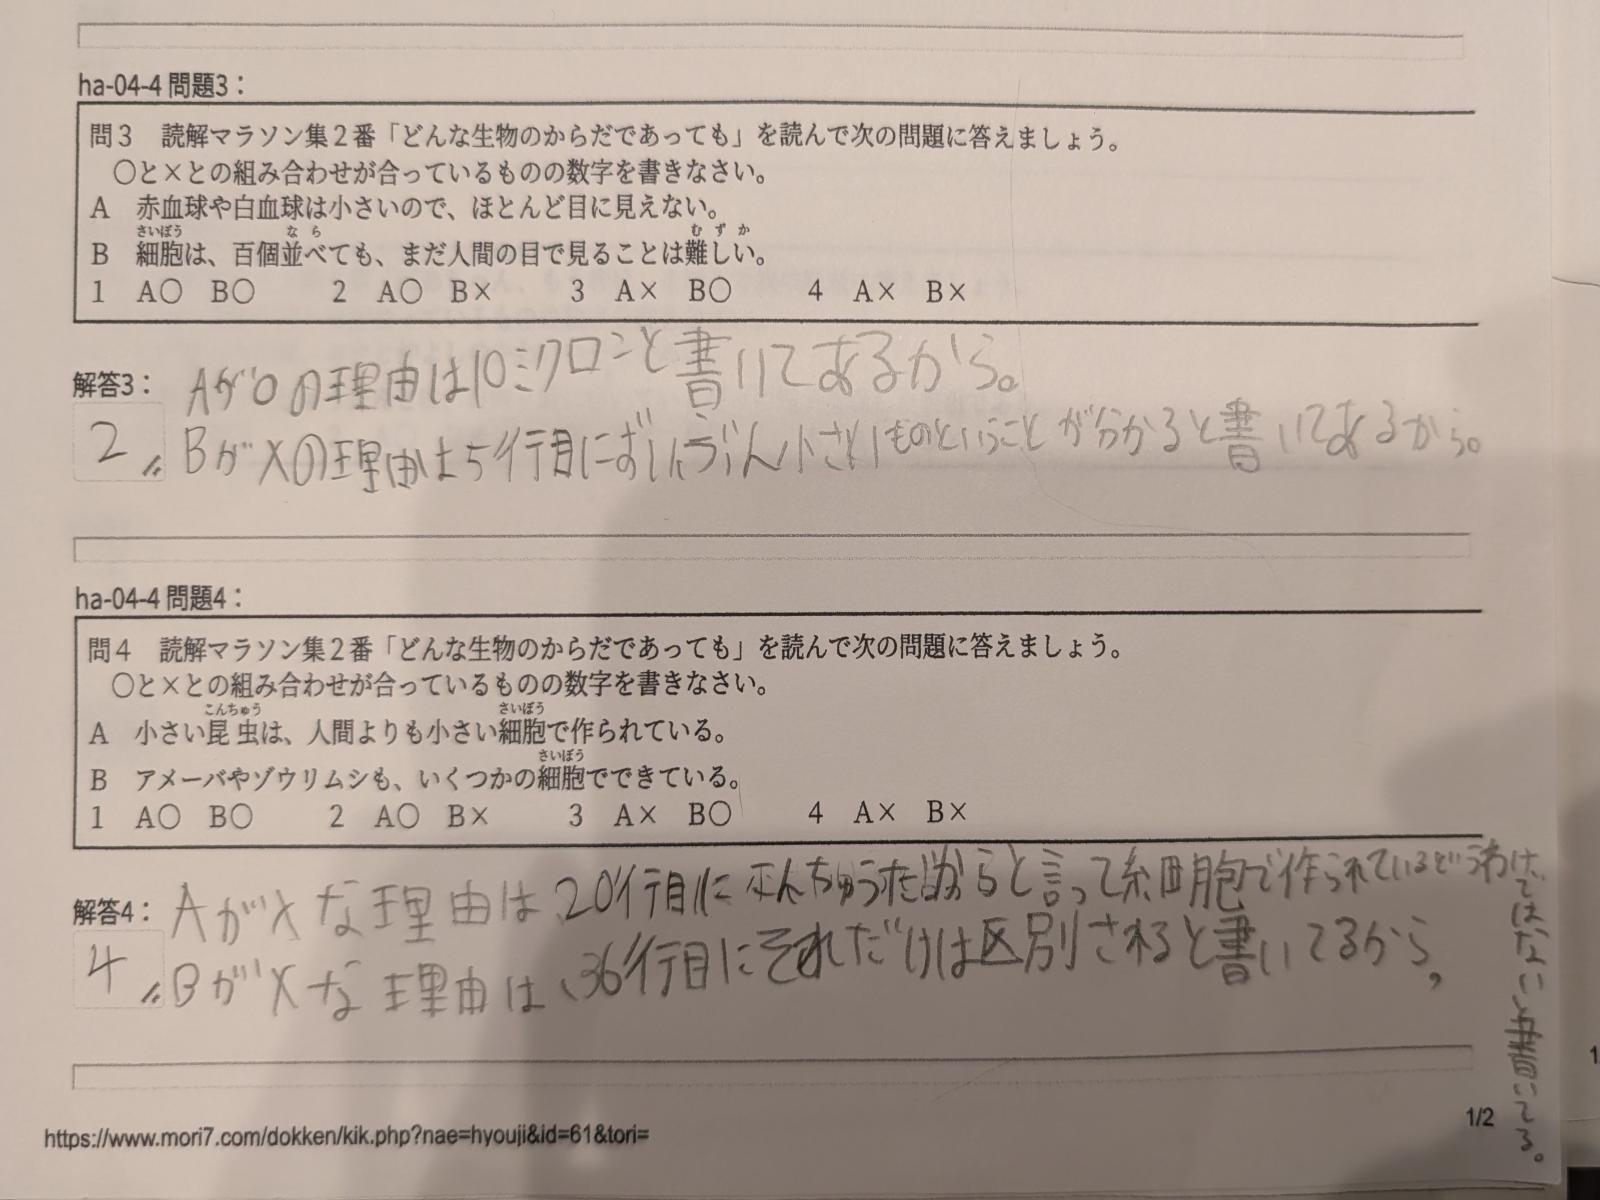 ha-04-4 問題3：
問3　読解マラソン集2番「どんな生物のからだであっても」を読んで次の問題に答えましょう。
○と×との組み合わせが合っているものの数字を書きなさい。
A　赤血球や白血球は小さいので、ほとんど目に見えない。
さいぼう　なら　むずか
B　細胞は、百個並べても、まだ人間の目で見ることは難しい。
1　A○　B○　　2　A○　B×　　3　A×　B○　　4　A×　B×
解答3：
2
Aが○の理由は10ミクロンと書いてあるから。
BがXの理由は5行目にずいぶん小さいものということが分かると書いてあるから。
ha-04-4 問題4：
問4　読解マラソン集2番「どんな生物のからだであっても」を読んで次の問題に答えましょう。
○と×との組み合わせが合っているものの数字を書きなさい。
こんちゅう　さいぼう
A　小さい昆虫は、人間よりも小さい細胞で作られている。
さいぼう
B　アメーバやゾウリムシも、いくつかの細胞でできている。
1　A○　B○　　2　A○　B×　　3　A×　B○　　4　A×　B×
解答4：
4
AがXな理由は、20行目にこんちゅうだからと言って細胞で作られているというわけではないと書いてる。
BがXな理由は、36行目にそれだけは区別されると書いてるから,
https://www.mori7.com/dokken/kik.php?nae=hyouji&id=61&tori=
1/2